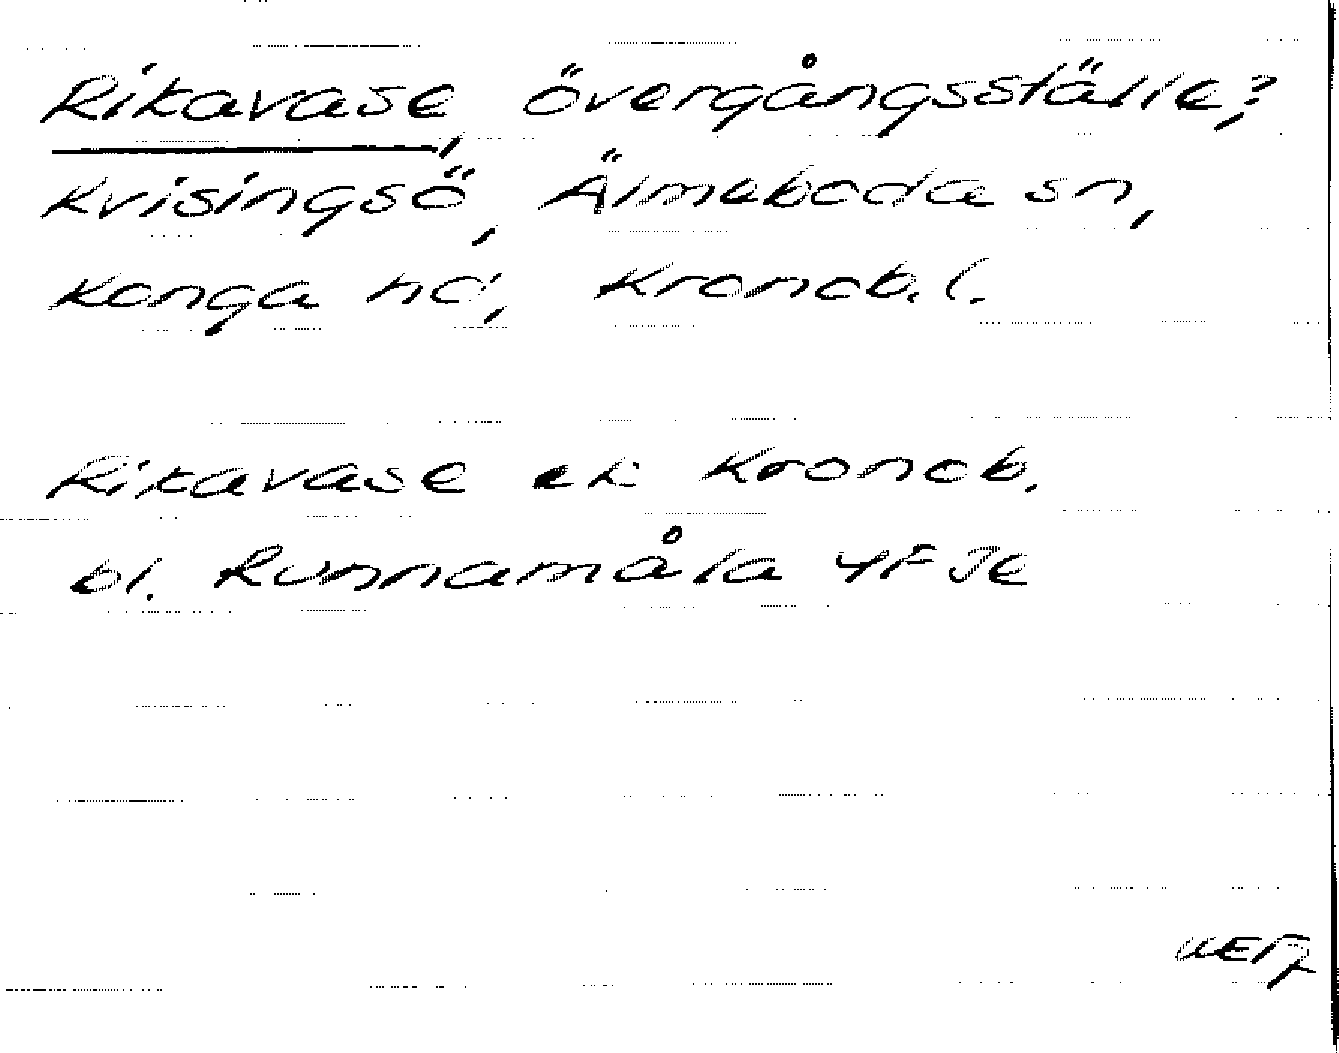 Rikavase, övergångsställe?,
Kvisingsö, Älmeboda sn,
Konga hd, Kronob. l.
Rikavase ek Kronob.
bl. Runnamåla 4F Je